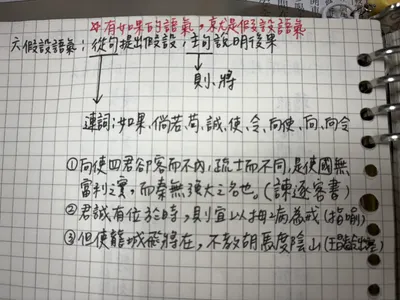 ☆有如果的語氣，就是假設語氣
六假設語氣：從句提出假設；主句說明後果
則、將
連詞：如果、倘若、苟、誠、使、令、向使、向、向令
①向使四君卻客而不內，疏士而不同，是使國無
富利之實，而秦無強大之名也。(諫逐客書)
②君誠有位於時，則宜以拇病為戒(指喻)
③但使龍城飛將在，不教胡馬度陰山(王昌齡出塞)